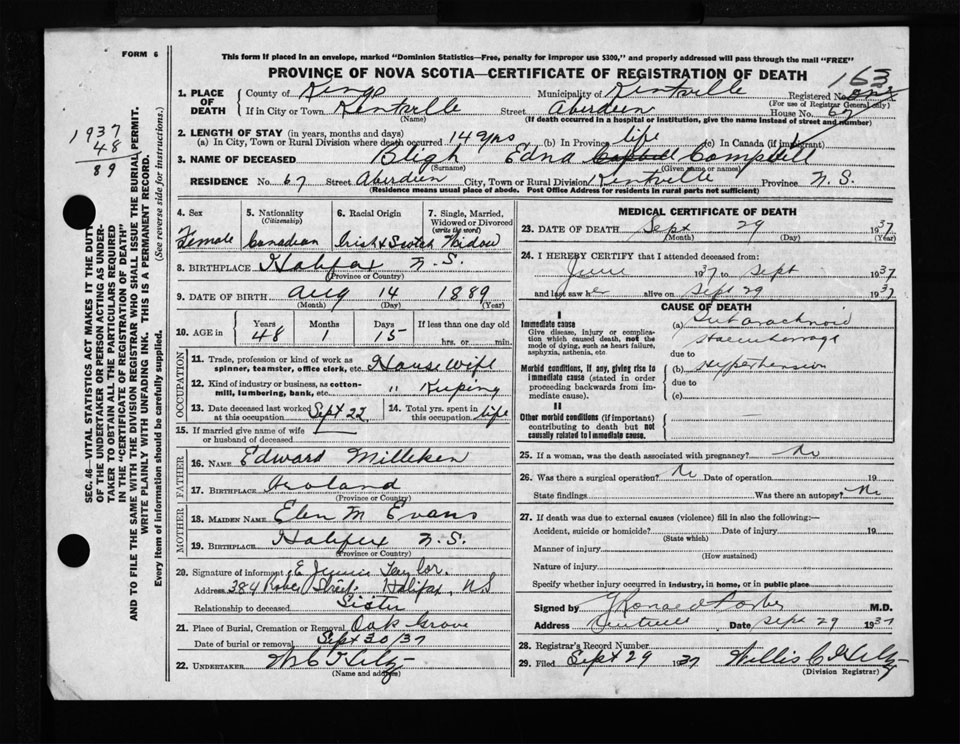 FORM 6
This form if placed in an envelope, marked "Dominion Statistics—Free, penalty for improper use $300," and properly addressed will pass through the mail "FREE"
PROVINCE OF NOVA SCOTIA—CERTIFICATE OF REGISTRATION OF DEATH
163
1937
48
89
SEC. 46—VITAL STATISTICS ACT MAKES IT THE DUTY
OF THE UNDERTAKER OR PERSON ACTING AS UNDER-
TAKER TO OBTAIN ALL THE PARTICULARS REQUIRED
IN THE "CERTIFICATE OF REGISTRATION OF DEATH"
AND TO FILE THE SAME WITH THE DIVISION REGISTRAR WHO SHALL ISSUE THE BURIAL PERMIT.
WRITE PLAINLY WITH UNFADING INK. THIS IS A PERMANENT RECORD.
Every item of information should be carefully supplied. (See reverse side for instructions.)
1. PLACE OF DEATH County of Kings Municipality of Kentville Registered No. one
(For use of Registrar General only)
If in City or Town Kentville Street Aberdeen House No. 67
(Name) (If death occurred in a hospital or institution, give the name instead of street and number)
2. LENGTH OF STAY (in years, months and days)
(a) In City, Town or Rural Division where death occurred 14 yrs (b) In Province life (c) In Canada (if immigrant)
3. NAME OF DECEASED Bligh Edna Campbell
(Surname) (Given name or names)
RESIDENCE No. 67 Street Aberdeen City, Town or Rural Division Kentville Province N.S.
(Residence means usual place of abode. Post Office Address for residents in rural parts not sufficient)
4. Sex 5. Nationality 6. Racial Origin 7. Single, Married,
(Citizenship) Widowed or Divorced
(write the word)
Female Canadian Irish & Scotch Widow
8. BIRTHPLACE Halifax N.S.
(Province or Country)
9. DATE OF BIRTH Aug 14 1889
(Month) (Day) (Year)
10. AGE in Years Months Days If less than one day old
48 1 15 hrs. or min.
OCCUPATION
11. Trade, profession or kind of work as
spinner, teamster, office clerk, etc. House Wife
12. Kind of industry or business, as cotton-
mill, lumbering, bank, etc. " Keeping
13. Date deceased last worked at this occupation Sept 22 14. Total yrs. spent in this occupation life
15. If married give name of wife
or husband of deceased
FATHER
16. NAME Edward Milliken
17. Birthplace
(Province or Country)
MOTHER
18. MAIDEN NAME Elen M Evans
19. Birthplace Halifax N.S.
(Province or Country)
20. Signature of informant E Taylor
Address 384 Street Halifax, NS
Relationship to deceased Sister
21. Place of Burial, Cremation or Removal Oak Grove
Date of burial or removal Sept 30/37
22. UNDERTAKER
(Name and address)
MEDICAL CERTIFICATE OF DEATH
23. DATE OF DEATH Sept 29 1937
(Month) (Day) (Year)
24. I HEREBY CERTIFY that I attended deceased from:
June 1937 to Sept 1937
and last saw her alive on Sept 29 1937
CAUSE OF DEATH
I
Immediate cause (a) Subarachnoid
Give disease, injury or complica-
tion which caused death, not the Haemhorrage
mode of dying, such as heart failure,
asphyxia, asthenia, etc. due to
Morbid conditions, if any, giving rise to (b) Hypertension
immediate cause (stated in order due to
proceeding backwards from im-
mediate cause). (c)
II
Other morbid conditions (if important)
contributing to death but not
causally related to immediate cause.
25. If a woman, was the death associated with pregnancy? No
26. Was there a surgical operation? No Date of operation 19
State findings Was there an autopsy? No
27. If death was due to external causes (violence) fill in also the following:—
Accident, suicide or homicide? Date of injury 19
(State which)
Manner of injury
(How sustained)
Nature of injury
Specify whether injury occurred in industry, in home, or in public place
Signed by M.D.
Address Kentville Date Sept 29 1937
28. Registrar's Record Number
29. Filed Sept 29 1937 Willis
(Division Registrar)